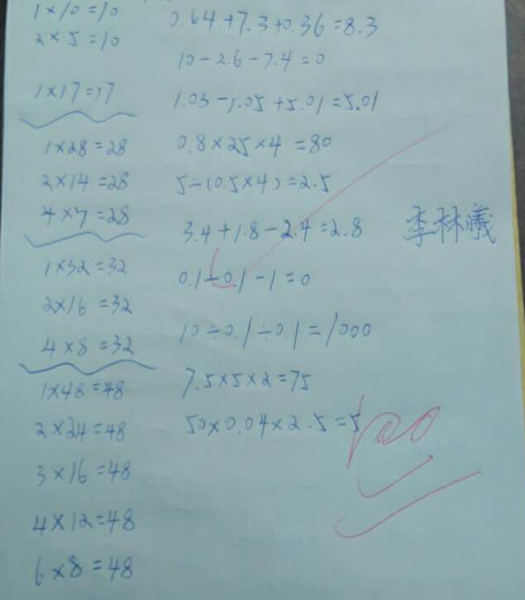 1×10=10
2×5=10
1×17=17
1×28=28
2×14=28
4×7=28
1×32=32
2×16=32
4×8=32
1×48=48
2×24=48
3×16=48
4×12=48
6×8=48
0.64+7.3+0.36=8.3
10-2.6-7.4=0
1.05-1.05+5.01=5.01
0.8×25×4=80
5÷(0.5×4)=2.5
3.4+1.8-2.4=2.8
0.1÷0.1-1=0
10÷0.1÷0.1=1000
7.5×5×2=75
50×0.04×2.5=5
李林曦
100